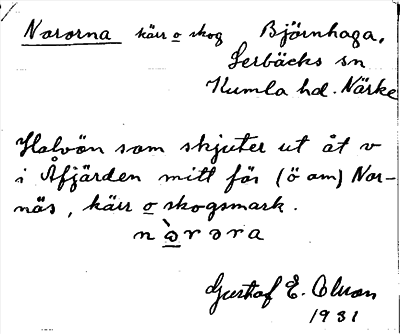 Nororna kärr o skog Björnhaga,
Lerbäcks sn
Kumla hd. Närke
Halvön som skjuter ut åt v
i Åfjärden mitt för (ö om) Nor-
näs, kärr o skogsmark.
nə̀rəra
Gustaf E. Olson
1931